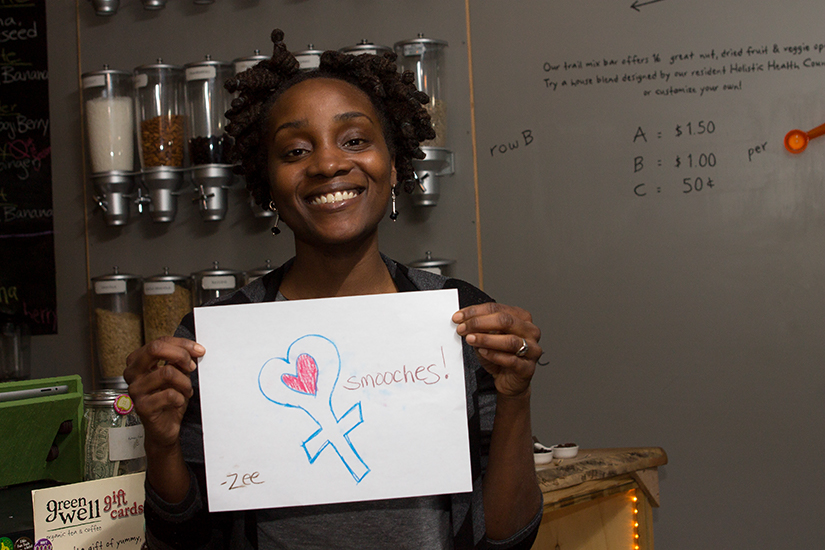 seed
Banana
Banana
Banana
Our trail mix bar offers 16 great nut, dried fruit & veggie op
Try a house blend designed by our resident Holistic Health Coun
or customize your own!
row B
A = $1.50
B = $1.00
C = 50¢
per
smooches!
-Zee
green
well
gift
cards
organic tea & coffee
gift of yummy,